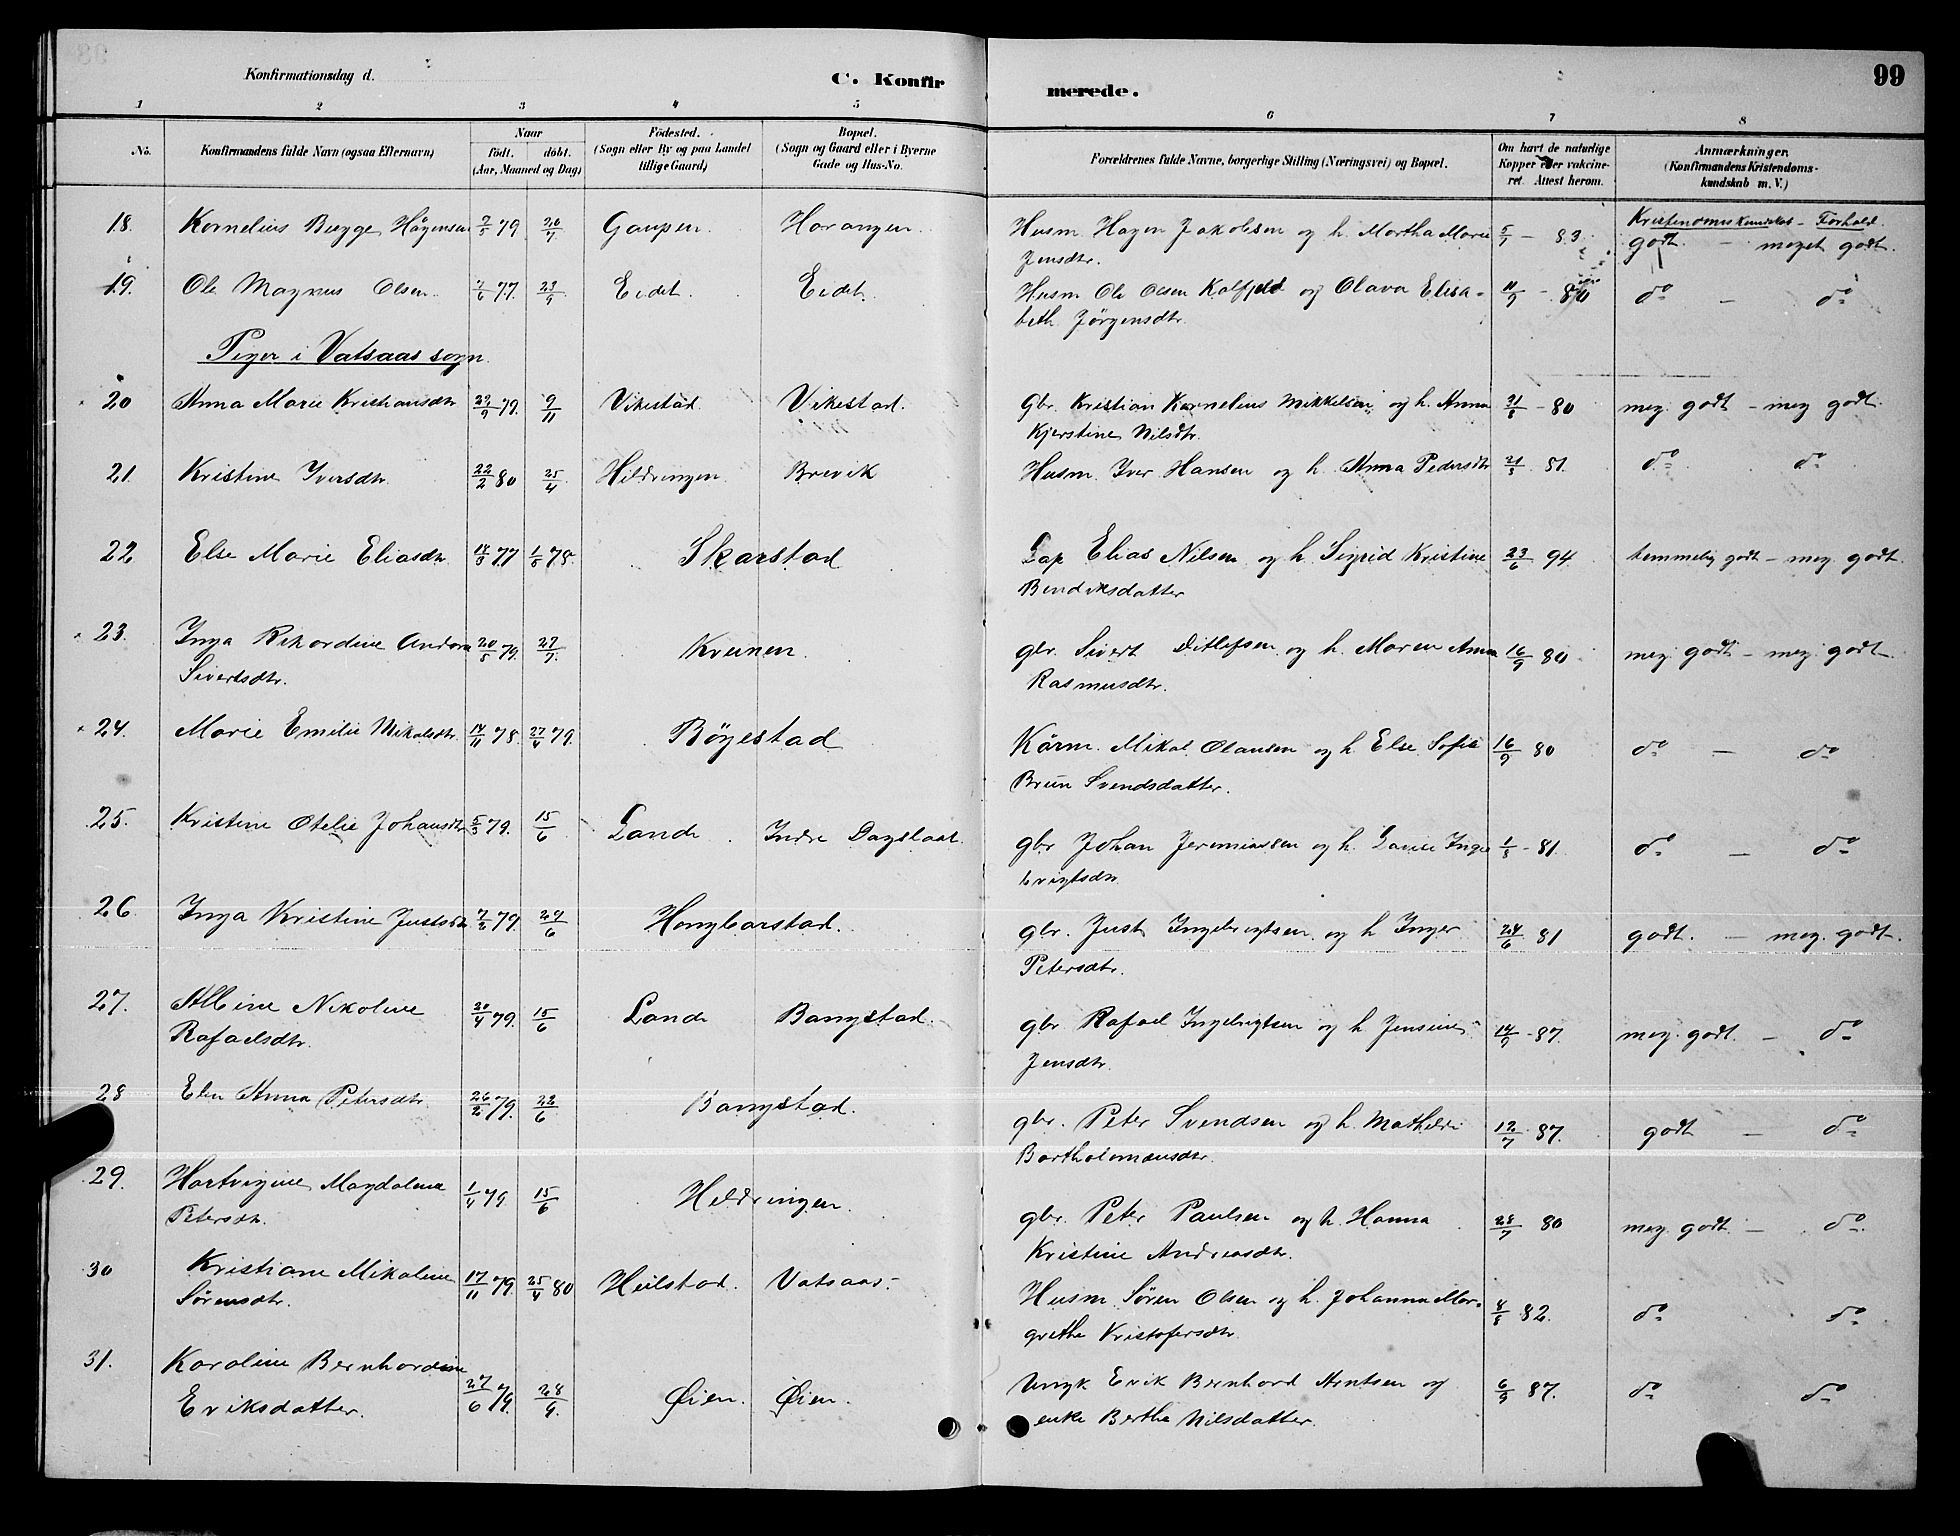 99
Konfirmationsdag d.
C. Konfir
merede.
1 2 3 4 5 6 7 8
No.
Konfirmandens fulde Navn (ogsaa Efternavn)
Naar
født. døbt.
(Aar, Maaned og Dag)
Fødested.
(Sogn eller By og paa Landet
tillige Gaard)
Bopæl.
(Sogn og Gaard eller i Byerne
Gade og Hus-No.
Forældrenes fulde Navne, borgerlige Stilling (Næringsvei) og Bopæl.
Om havt de naturlige
Kopper eller vakcine-
ret. Attest herom.
Anmærkninger.
(Konfirmandens Kristendoms-
kundskab m. V.)
Kristendomskundskab - Forhold.
18. Kornelius Bugge Hågensen 2/5 79 20/7 Gaupen. Harangen. Husm. Hagen Jakobsen og h. Martha Marie 5/7 - 83. godt. - meget godt.
Jensdtr.
19. Ole Magnus Olsen. 7/6 77 23/9 Eidet. Eidet. Husm Ole Olsen og Olava Elisa- 11/9 - 80 do - do
beth Jörgensdtr.
Piger i Vatsaas sogn.
20 Anna Marie Kristiansdtr 29/9 79. 9/11 Vikestad. Vikestad. gbr. Kristian Kornelius Mikkelsen og h. Anna 31/8 - 80 meg. godt - meg godt.
Kjerstine Nilsdtr.
21. Kristine Iversdtr. 22/2 80 25/4 Hildringen. Brevik Husm. Iver Hansen og h. Anna Pedersdtr 21/8 81. do do
22 Else Marie Eliasdtr. 14/3 77 1/5 78. Skarstad Lap Elias Nilsen og h. Sigrid Kristine 23/6 94. temmelig godt - meg. godt.
Bendiksdatter
23. Inga Rikardine Andora 20/5 79. 27/7. Kvinen. gbr. Sivert Ditlefsen og h. Maren Anna 16/9 80 meg. godt - meg. godt.
Sivertsdtr. Rasmusdtr.
24. Marie Emilie Mikalsdtr. 14/11 78. 27/4 79. Bögestad Kårm. Mikal Olausen og h. Else Sofie 16/9 80 do - do
Brun Svendsdatter.
25. Kristine Otelie Johansdtr 5/3 79. 15/6 Lande. Indre Dagslaat. gbr Johan Jeremiassen og h. Lovise Inge 1/8 - 81. do - do
brigtsdtr.
26 Inga Kristine Justsdtr 7/2 79. 29/6 Hongbarstad. gbr. Just Ingebrigtsen og h Inger 24/6 81 godt. - meg. godt.
Petersdtr.
27. Albine Nikoline 20/4 79. 15/6 Lande Bangstad. gbr. Rafael Ingebrigtsen og h Jensine 14/9 - 87. meg. godt. - do
Rafaelsdtr. Jensdtr.
28 Elen Anna Petersdtr 26/2 79. 22/6 Bangstad. gbr. Peter Svendsen og h. Mathilde 12/7 87. godt - do
Bartholomæusdtr.
29. Hartvigine Magdalene 1/4 79. 15/6 Hildringen. gbr. Peter Paulsen og h. Hanna 28/7 80 meg. godt - do
Petersdtr. Kristine Andreasdtr.
30 Kristiane Mikaline 17/11 79. 25/4 80 Heilstad. Vatsaas. Husm Sören Olsen og h. Johanna Mar- 8/8 82. do do
Sörensdtr. grethe Kristofersdtr.
31. Karoline Bernhardine 27/6 79. 28/9. Øien. Øien. Ungk Erik Bernhard Arntsen og 6/9 87. do do
Eriksdatter. enke Berthe Nilsdatter.